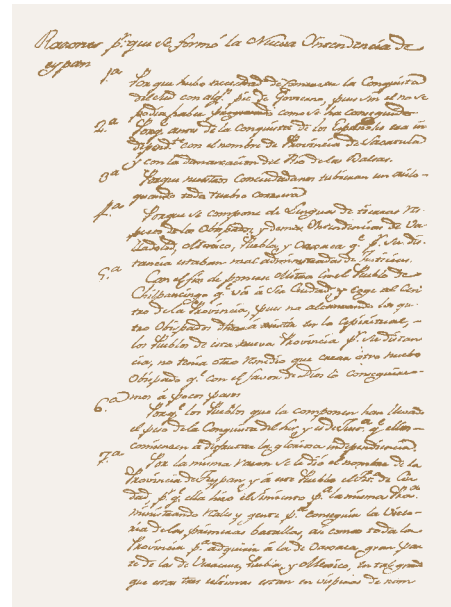 Razones p.r que se formó la Nueva Yntendencia de
Teypan
1.a Por que hubo necesidad de fomentar la Conquista
del Sud con aquel pie de Govierno, pues sin el no se
podia haber progresado como se ha conseguido.
2.a Porq.e antes de la Conquista de los Españoles era in
depend.te con el nombre de Provincia de Zacatula
y con la demarcacion del Rio de las Balsas.
3.a Porque nuestros Conciudadanos tubieran un asilo
quando todo turbio corriera
4.a Porque se compone de Lenguas de tierras res-
pecto de los Obispados, y demas Yntendencias de Va-
lladolid, Mexico, Puebla, y Oaxaca q.e p.r su dis-
tancia estaban mal administradas de Justicia.
5.a Con el fin de poner Mitra en el Pueblo de
Chilpancingo q.e será Sta Ciudad, y coge al Cen-
tro de la Provincia, pues no alcanzando los qua-
tro Obispados dhos á asistir en lo espiritual,
los Pueblos de esta nueva Provincia p.r su distan
cia, no tenía otro remedio que crear otro nuevo
Obispado q.e con el favor de Dios lo conseguire-
mos á pocos pasos
6.a Porq.e los Pueblos que la componen han llevado
el peso de la Conquista del Sur, y de su ... q.e ellos
comiensen á disfrutar la gloriosa independencia.
7.a Por la misma razon se le dió el nombre de la
Provincia de Teypan, y á este Pueblo el Tit.o de Ciu
dad, p.r q.e ella hizo el simiento p.a la misma Pro.a
ministrando reales y gente p.a conseguir la Victo-
ria de las primeras batallas, asi como toda la
Provincia p.a adquirir á la de Oaxaca gran par
te de las de Veracruz, Puebla, y Mexico, en tal grado
que estas tres ultimas estan en visperas de nom